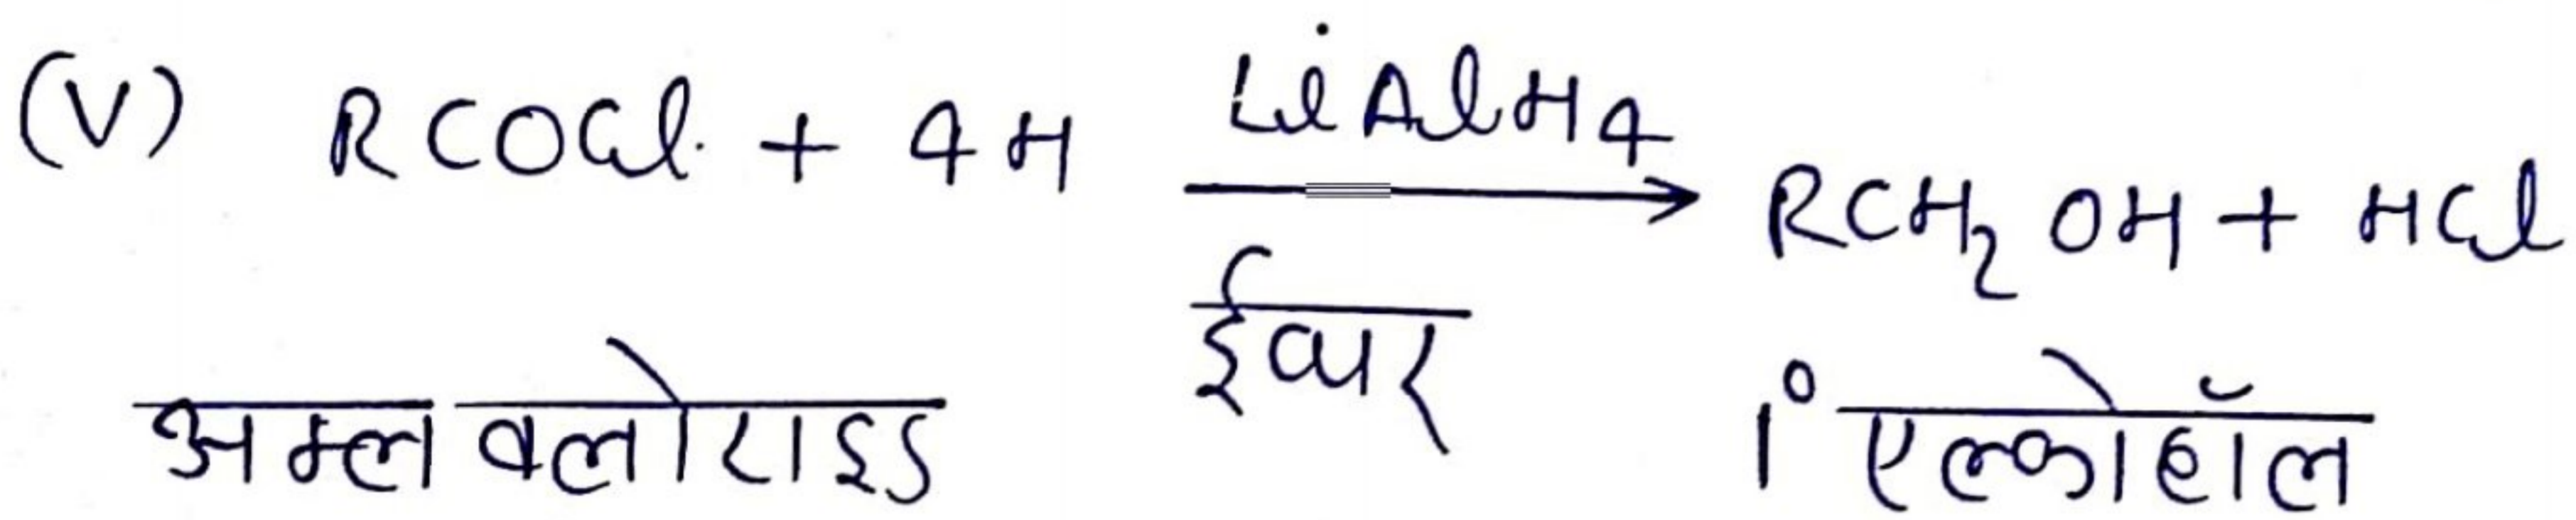 (V) RCOCl + 4H LiAlH4 → RCH2OH + HCl
ईथर
अम्ल क्लोराइड 1° एल्कोहॉल